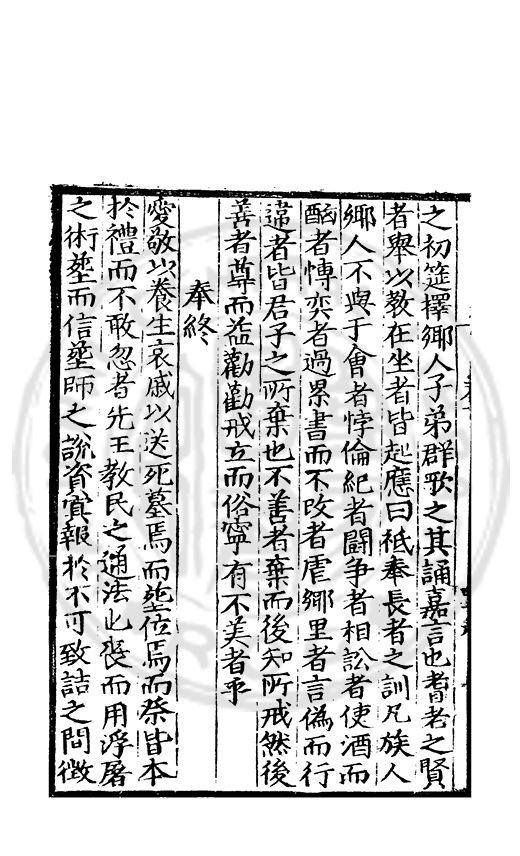 之初筵擇鄉人子弟群歌之其誦嘉言也耆老之賢
者舉以教在坐者皆起應曰祗奉長者之訓凡族人
鄉人不與于會者悖倫紀者鬬爭者相訟者使酒而
酗者慱奕者過累書而不改者虐鄉里者言偽而行
違者皆君子之所棄也不善者棄而後知所戒然後
善者尊而益勸勸戒立而俗寧有不美者乎
奉終
愛敬以養生哀戚以送死墓焉而塟位焉而祭皆本
於禮而不敢忽者先王教民之通法也喪而用浮屠
之術塟而信塟師之說資冥報於不可致詰之間徼